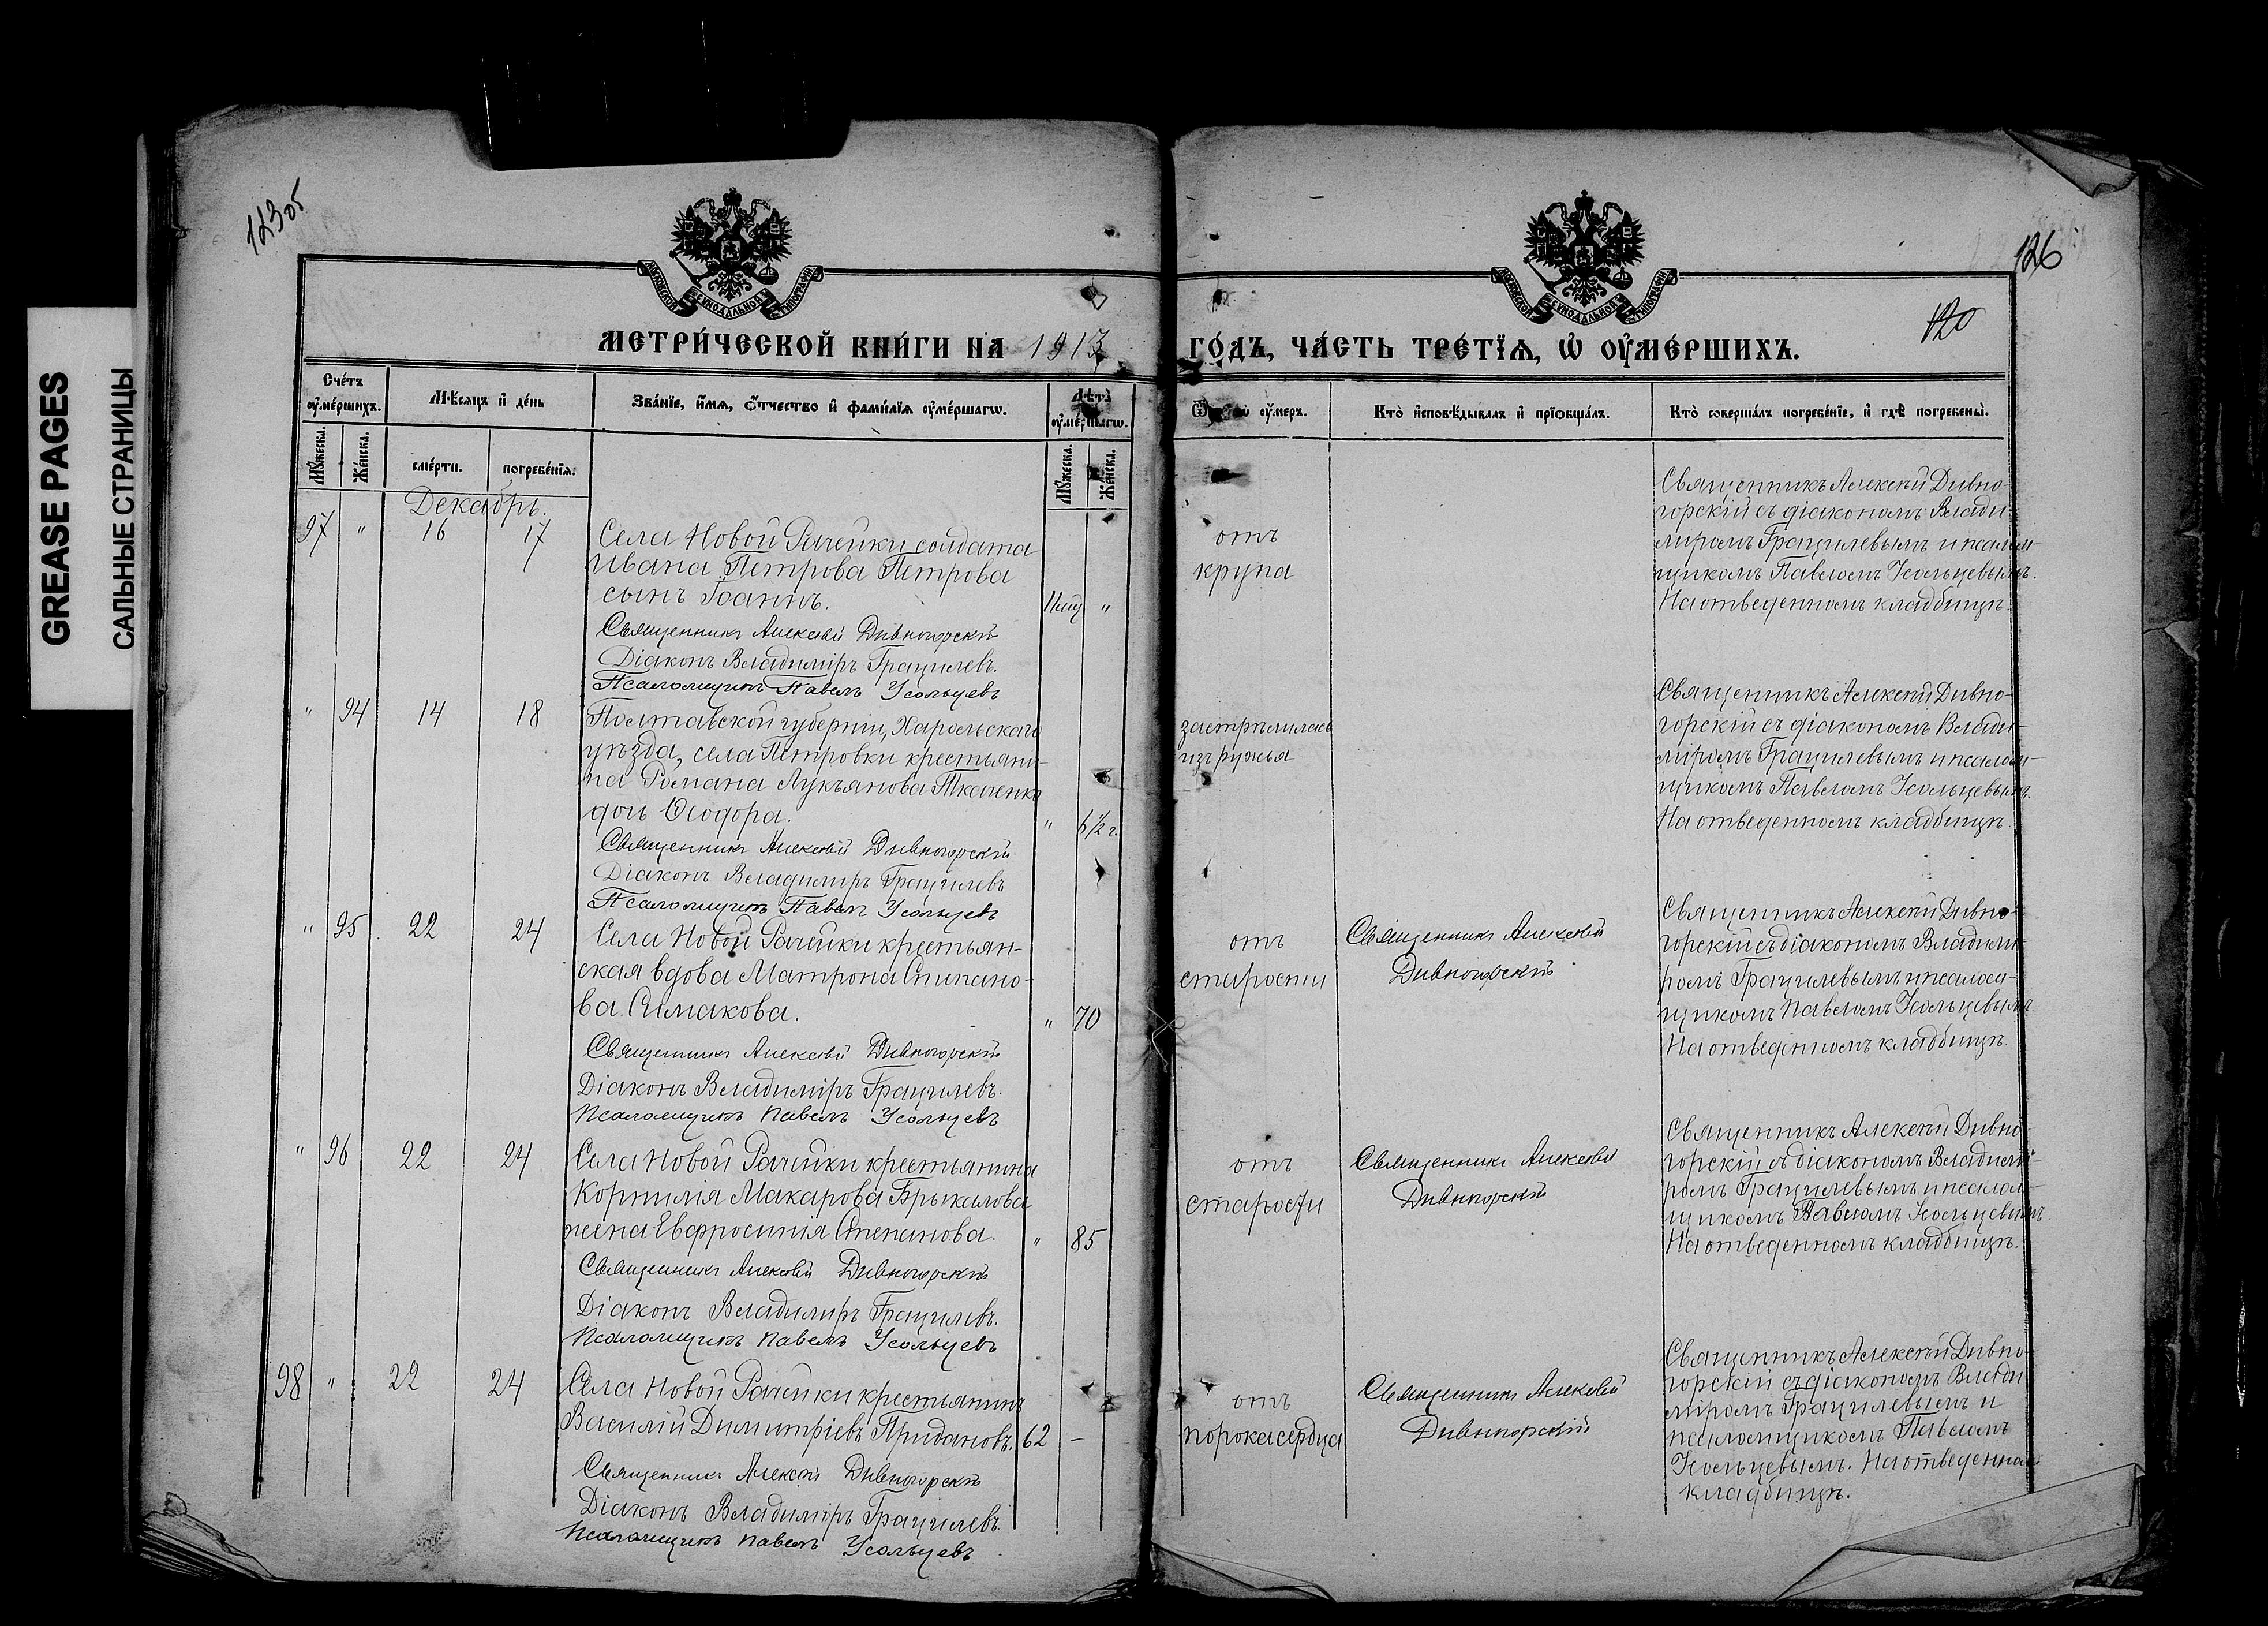 GREASE PAGES
САЛЬНЫЕ СТРАНИЦЫ
126
120
МЕТРИ́ЧЕСКОЙ КНИ́ГИ НА 1913
ГО́ДЪ, ЧА́СТЬ ТРЕ́ТЇѦ, Ѡ҆ ОУ҆МЕ́РШИХЪ.
Сче́тъ оу҆ме́ршихъ.
Мѣ́сяцъ и҆ де́нь
Зва́нїе, и҆́мѧ, ѻ҆́тчество и҆ фами́лїѧ оу҆ме́ршагѡ.
Лѣ́та̀ оу҆ме́ршагѡ.
оу҆́меръ.
Кто̀ и҆сповѣ́дывалъ и҆ прїѡбща́лъ.
Кто̀ соверша́лъ погребе́нїе, и҆ гдѣ̀ погребены̀.
Мꙋ́жеска.
Же́нска.
сме́рти.
погребе́нїѧ.
Мꙋ́жеска.
Же́нска.
Декабрь.
97 " 16 17
Села Новой Рачейки солдата
Ивана Петрова Петрова
сынъ Іоаннъ.
"
Священникъ Алексѣй Дивногорскій
Діаконъ Владиміръ Грацилевъ.
Псаломщикъ Павелъ Усольцевъ
отъ
крупа
Священникъ Алексѣй Дивно-
горскій съ діакономъ Влади-
міромъ Грацилевымъ и псалом-
щикомъ Павломъ Усольцевымъ.
На отведенномъ кладбищѣ.
" 94 14 18
Полтавской губерніи, Харольскаго
уѣзда, села Петровки крестьяни-
на Романа Лукьянова Ткаченко
дочь Ѳеодора.
" 6 1/2 г.
Священникъ Алексѣй Дивногорскій
Діаконъ Владиміръ Грацилевъ
Псаломщикъ Павелъ Усольцевъ
застрѣлилась
изъ ружья
Священникъ Алексѣй Дивно-
горскій съ діакономъ Влади-
міромъ Грацилевымъ и псалом-
щикомъ Павломъ Усольцевымъ.
На отведенномъ кладбищѣ.
" 95 22 24
Села Новой Рачейки крестьян-
ская вдова Матрона Степано-
ва Симакова.
" 70
Священникъ Алексѣй Дивногорскій
Діаконъ Владиміръ Грацилевъ.
Псаломщикъ Павелъ Усольцевъ
отъ
старости
Священникъ Алексѣй
Дивногорскій
Священникъ Алексѣй Дивно-
горскій съ діакономъ Владимі-
ромъ Грацилевымъ и псалом-
щикомъ Павломъ Усольцевымъ.
На отведенномъ кладбищѣ.
" 96 22 24
Села Новой Рачейки крестьянина
Корнилія Макарова Брыкалова
жена Евфросинія Степанова.
" 85
Священникъ Алексѣй Дивногорскій
Діаконъ Владиміръ Грацилевъ.
Псаломщикъ Павелъ Усольцевъ
отъ
старости
Священникъ Алексѣй
Дивногорскій
Священникъ Алексѣй Дивно-
горскій съ діакономъ Владимі-
ромъ Грацилевымъ и псалом-
щикомъ Павломъ Усольцевымъ
На отведенномъ кладбищѣ.
98 " 22 24
Села Новой Рачейки крестьянинъ
Василій Димитріевъ Придановъ.
62 –
Священникъ Алексѣй Дивногорскій
Діаконъ Владиміръ Грацилевъ.
Псаломщикъ Павелъ Усольцевъ
отъ
порока сердца
Священникъ Алексѣй
Дивногорскій
Священникъ Алексѣй Дивно-
горскій съ діакономъ Влади-
міромъ Грацилевымъ и
псаломщикомъ Павломъ
Усольцевымъ. На отведенномъ
кладбищѣ.